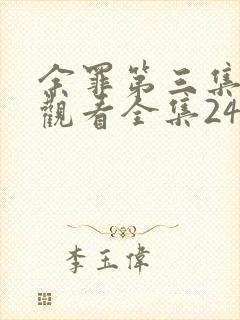 余罪第三集
觀看全集24
李玉偉